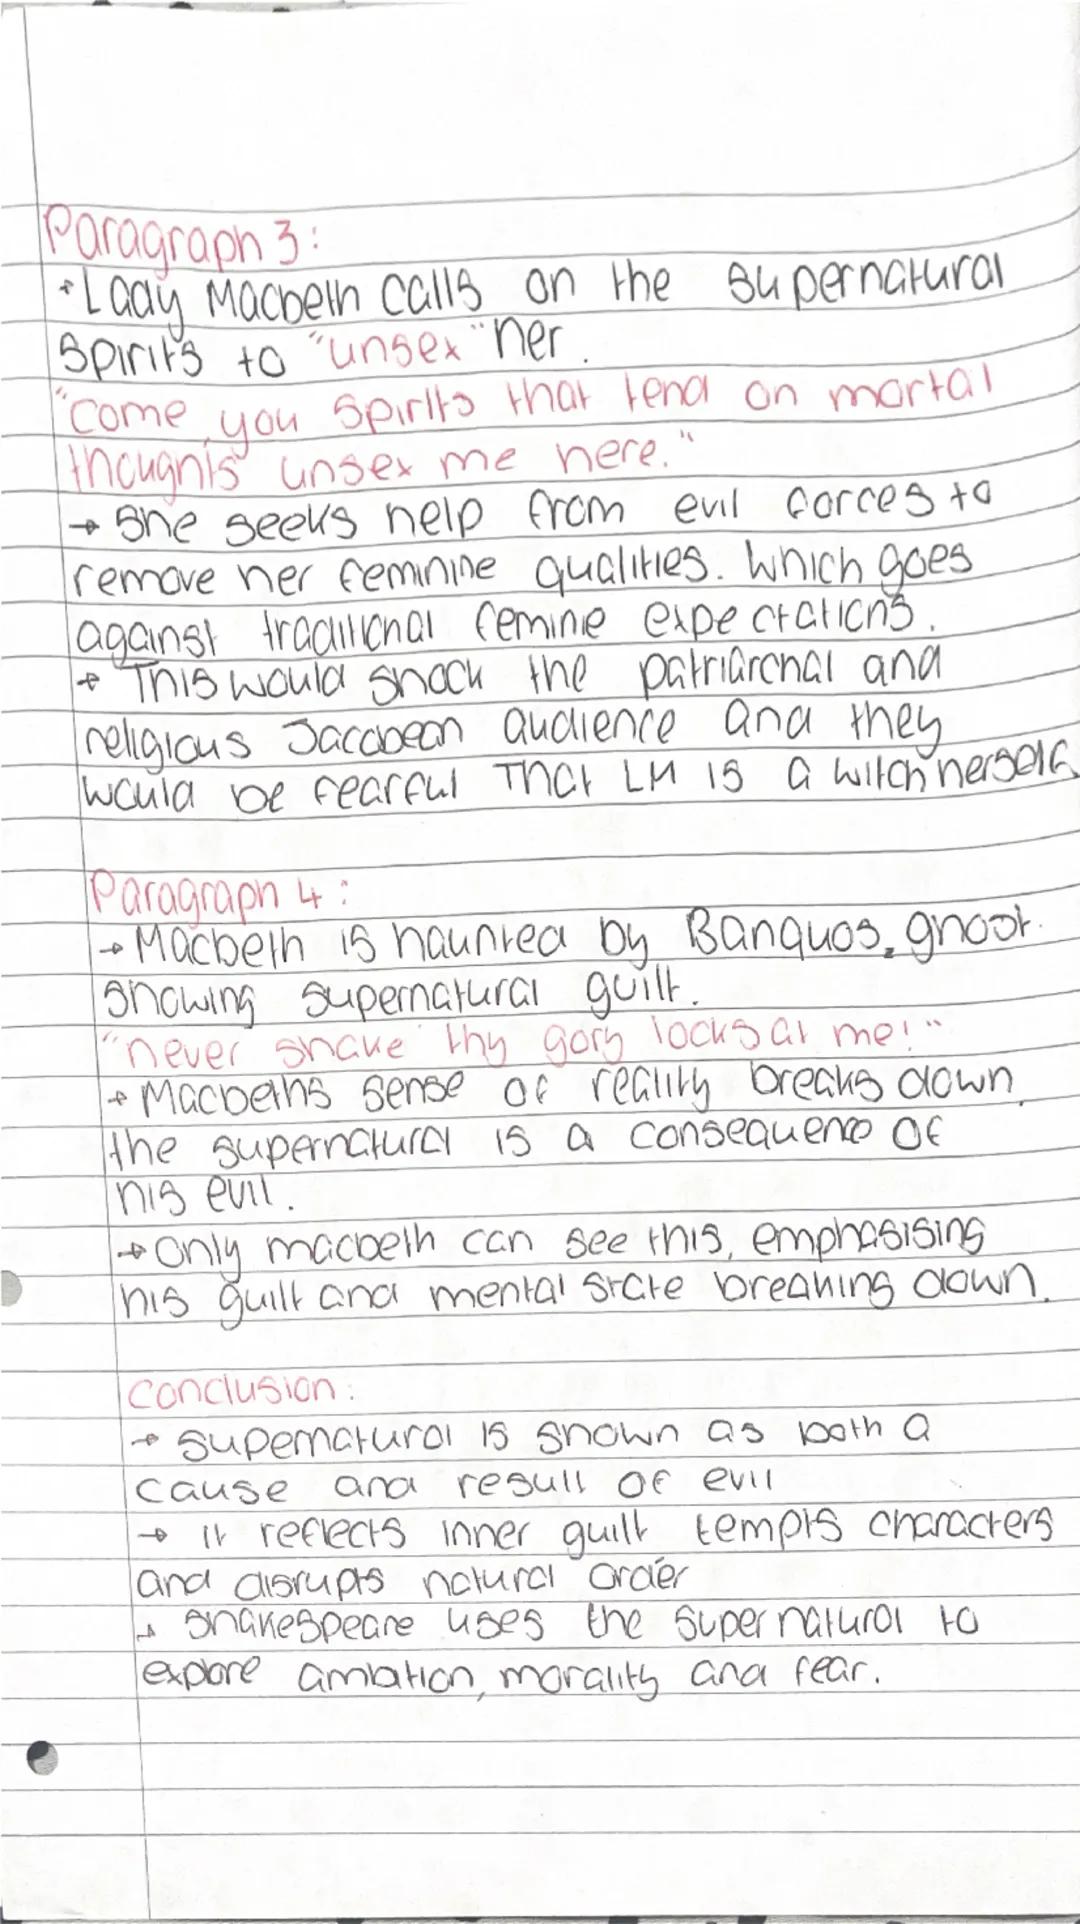 Paragraph 3:
→ Lady Macbeth calls on the supernatural
spirits to "unsex" her.
"come you spirits that tend on mortal
thoughts unsex me here."
→ She seeks help from evil forces to
remove her feminine qualities. Which goes
against traditional feminie expectations.
→ This would shock the patriarchal and
religious Jacobean audience and they
would be fearful that LM is a witch herself
Paragraph 4:
→ Macbeth is haunted by Banquos, ghost.
showing supernatural guilt.
"never shake thy gory locks at me!"
→ Macbeths sense of reality breaks down,
the supernatural is a consequence of
his evil.
→ Only macbeth can see this, emphasising
his guilt and mental state breaking down.
Conclusion:
→ supernatural is shown as both a
cause and result of evil
→ it reflects inner guilt tempts characters
and disrupts natural order
→ Shakespeare uses the supernatural to
explore ambition, morality and fear.